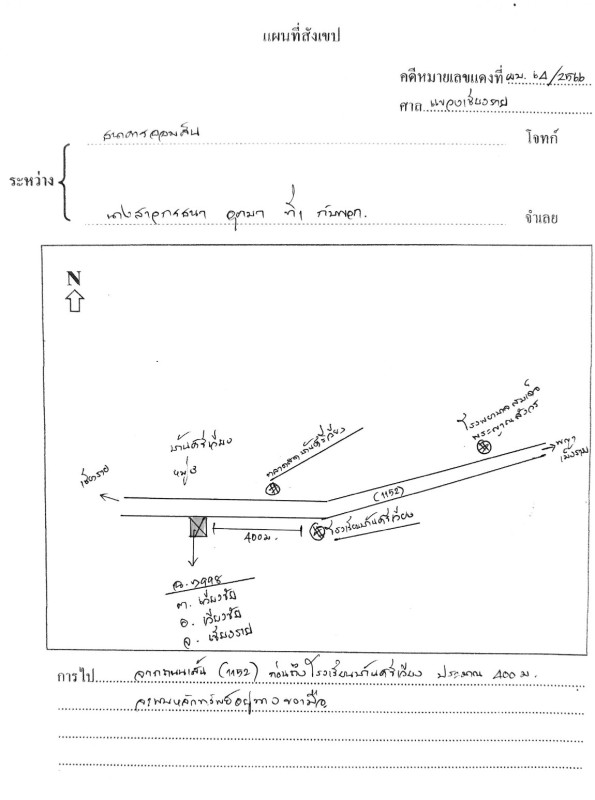 แผนที่สังเขป
คดีหมายเลขแดงที่ ผบ. 64/2566
ศาล แขวงเชียงราย
ธนาคารออมสิน โจทก์
ระหว่าง
นางสาวกรธนา ที่ 1 กับพวก. จำเลย
N
โรงพยาบาลสมเด็จ
พระญาณสังวร
พญา
เม็งราย
บ้านศรีเวียง
หมู่ 3
ตลาดสดบ้านศรีเวียง
เชียงราย
(1152)
โรงเรียนบ้านศรีเวียง
400 ม.
ต. เวียงชัย
อ. เวียงชัย
จ. เชียงราย
การไป จากถนนเส้น (1152) ก่อนถึงโรงเรียนบ้านศรีเวียง ประมาณ 400 ม.
จะพบหลักทรัพย์อยู่ทางขวามือ